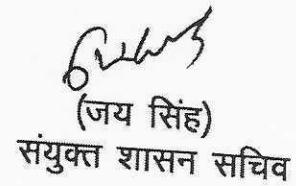 (जय सिंह)
संयुक्त शासन सचिव